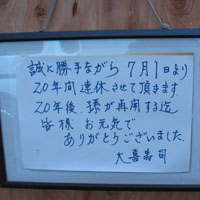 誠に勝手ながら 7月1日より
20年間連休させて頂きます.
20年後、孫が再開する迄
皆様 お元気で
ありがとうございました.
大喜寿司